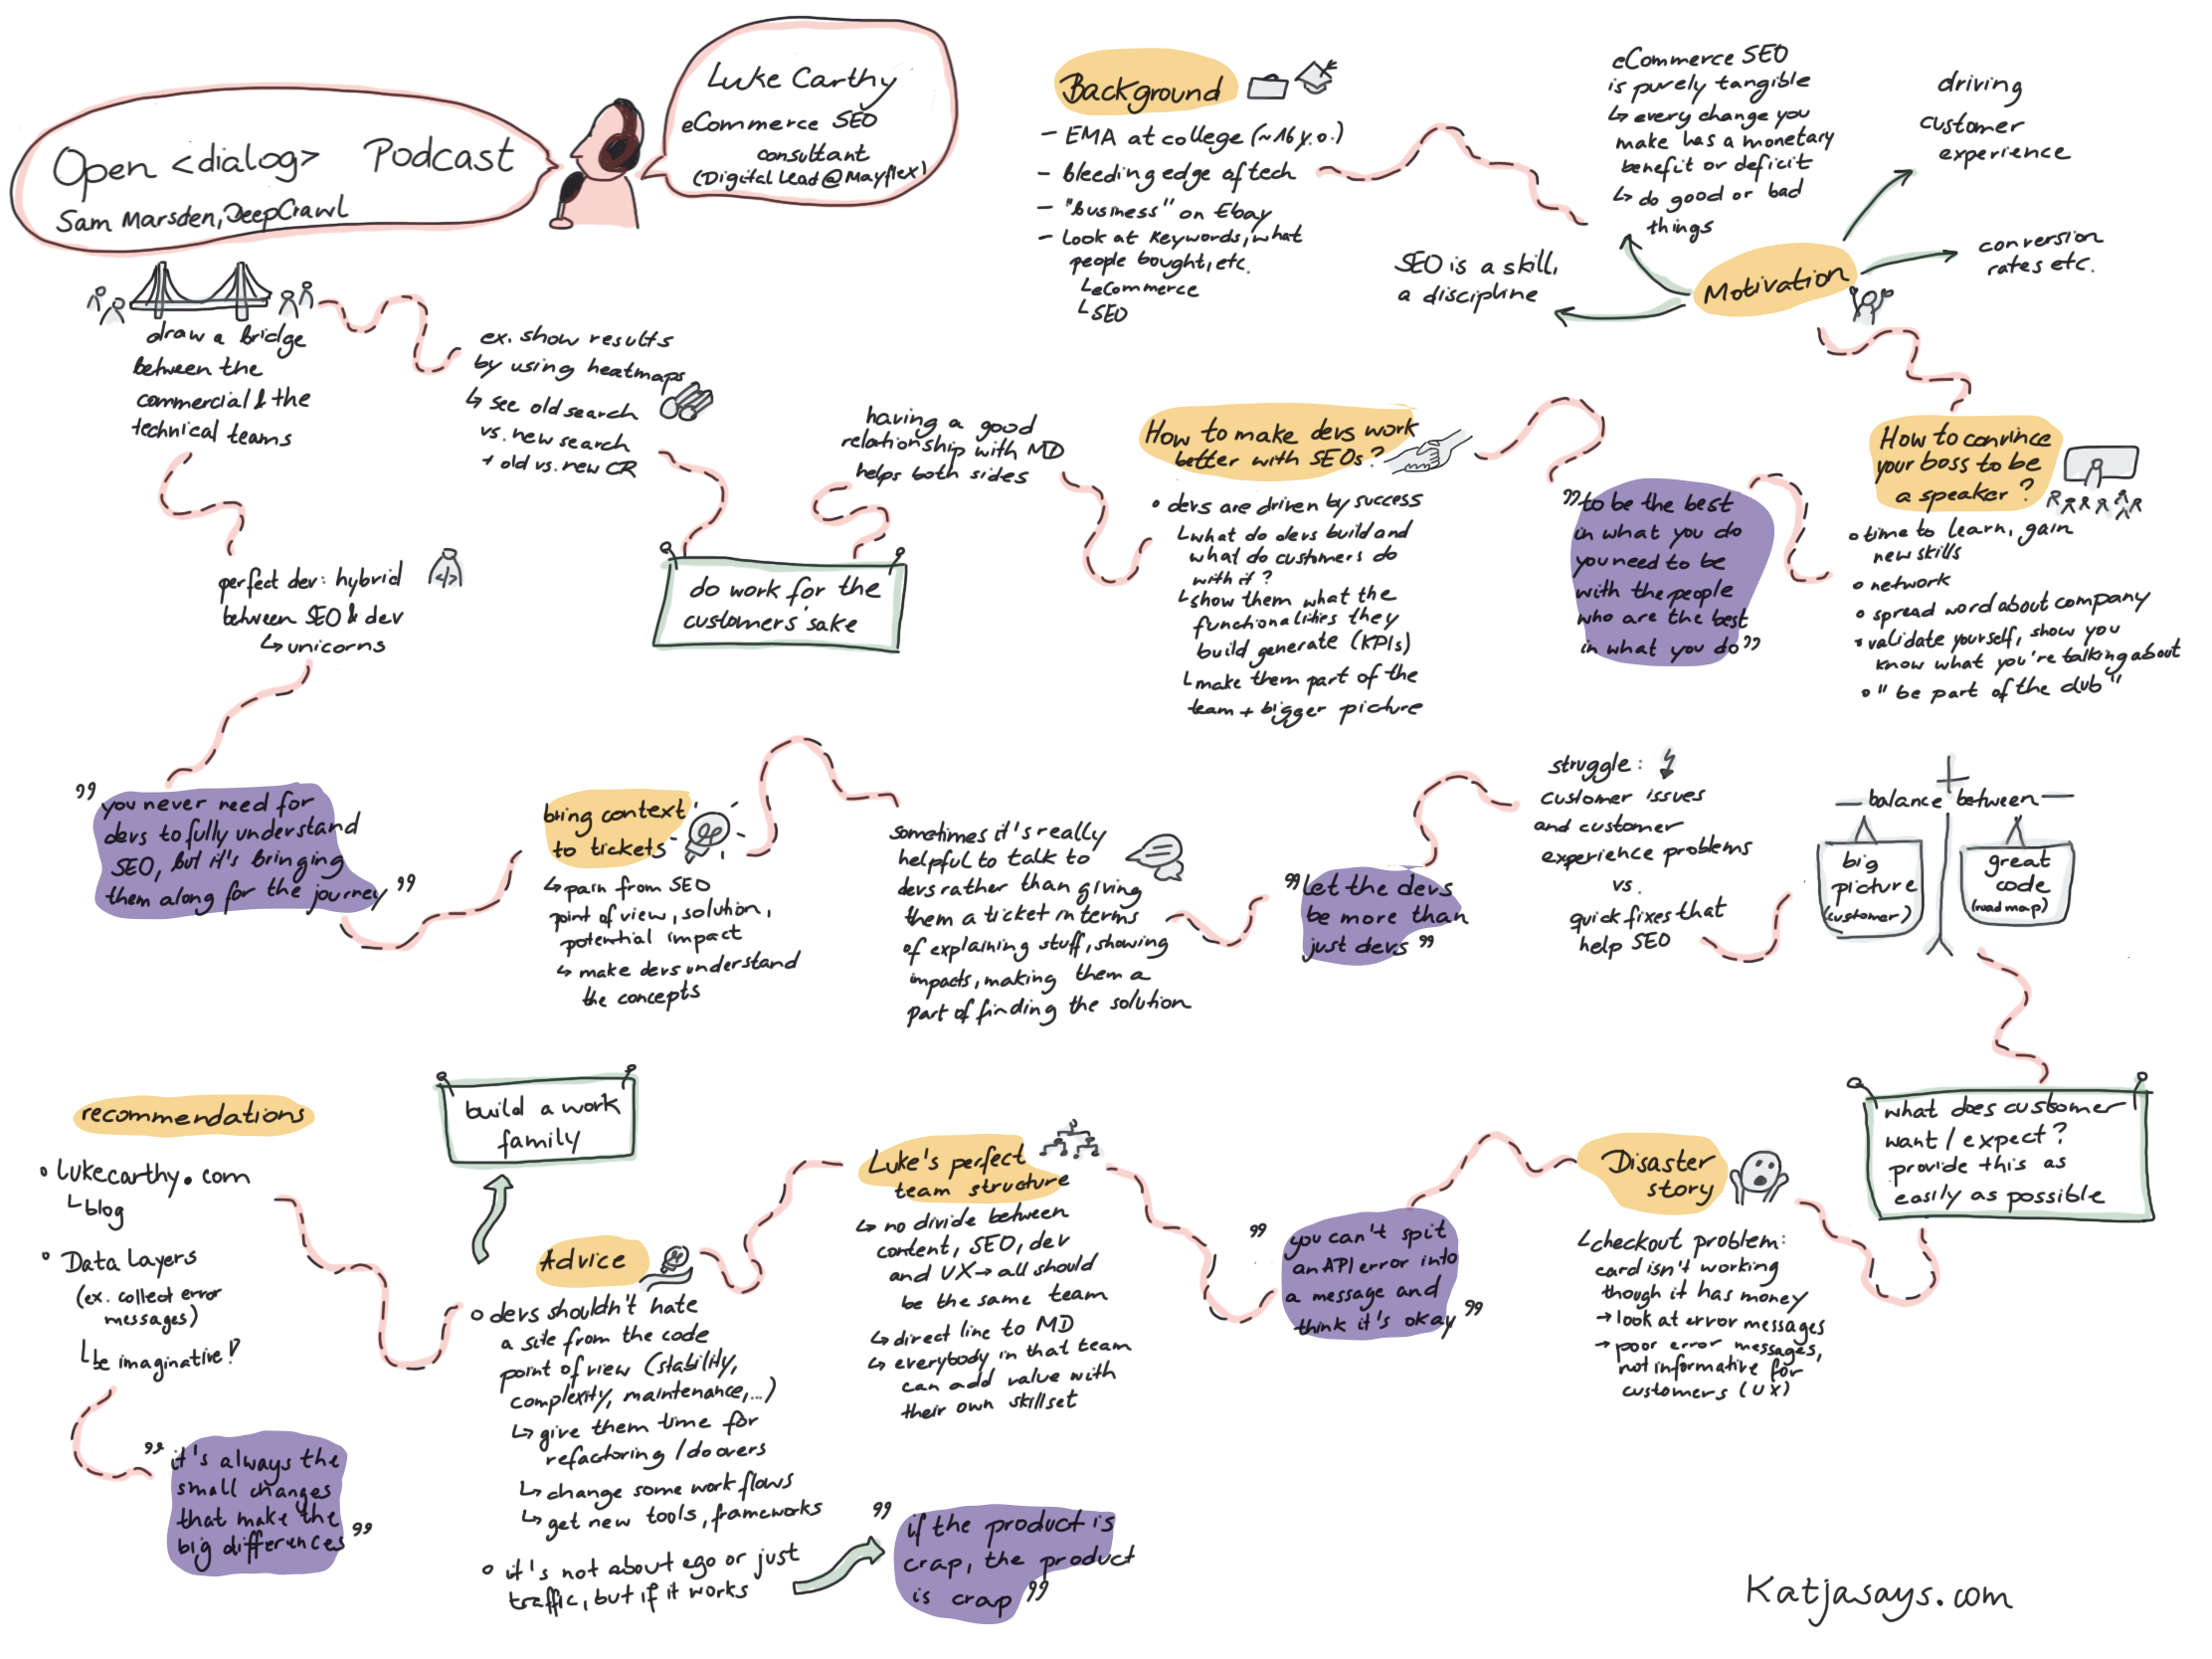 Open <dialog> Podcast
Sam Marsden, DeepCrawl
Luke Carthy
eCommerce SEO
consultant
(Digital Lead @ Mayflex)
Background
- EMA at college (~16 y.o.)
- bleeding edge of tech
- "business" on Ebay
- Look at keywords, what
people bought, etc.
↳ eCommerce
↳ SEO
eCommerce SEO
is purely tangible
↳ every change you
make has a monetary
benefit or deficit
↳ do good or bad
things
driving
customer
experience
conversion
rates etc.
SEO is a skill,
a discipline
Motivation
How to convince
your boss to be
a speaker?
• time to learn, gain
new skills
• network
• spread word about company
• validate yourself, show you
know what you're talking about
• "be part of the club"
"to be the best
in what you do
you need to be
with the people
who are the best
in what you do"
How to make devs work
better with SEOs?
• devs are driven by success
↳ what do devs build and
what do customers do
with it?
↳ show them what the
functionalities they
build generate (KPIs)
↳ make them part of the
team + bigger picture
having a good
relationship with MD
helps both sides
do work for the
customers' sake
ex. show results
by using heatmaps
↳ see old search
vs. new search
+ old vs. new CR
draw a bridge
between the
commercial & the
technical teams
perfect dev: hybrid
</>
between SEO & dev
↳ unicorns
"you never need for
devs to fully understand
SEO, but it's bringing
them along for the journey"
bring context
to tickets
↳ pain from SEO
point of view, solution,
potential impact
↳ make devs understand
the concepts
sometimes it's really
helpful to talk to
devs rather than giving
them a ticket in terms
of explaining stuff, showing
impacts, making them a
part of finding the solution
"let the devs
be more than
just devs"
struggle:
customer issues
and customer
experience problems
vs.
quick fixes that
help SEO
balance between
big
picture
(customer)
great
code
(road map)
what does customer
want / expect?
provide this as
easily as possible
Disaster
story
↳ checkout problem:
card isn't working
though it has money
→ look at error messages
→ poor error messages,
not informative for
customers (UX)
"you can't spit
an API error into
a message and
think it's okay"
Luke's perfect
team structure
↳ no divide between
content, SEO, dev
and UX → all should
be the same team
↳ direct line to MD
↳ everybody in that team
can add value with
their own skillset
build a work
family
Advice
• devs shouldn't hate
a site from the code
point of view (stability,
complexity, maintenance,...)
↳ give them time for
refactoring / do overs
↳ change some workflows
↳ get new tools, frameworks
• it's not about ego or just
traffic, but if it works
"if the product is
crap, the product
is crap"
recommendations
• lukecarthy.com
↳ blog
• Data Layers
(ex. collect error
messages)
↳ be imaginative!
"it's always the
small changes
that make the
big differences"
Katjasays.com